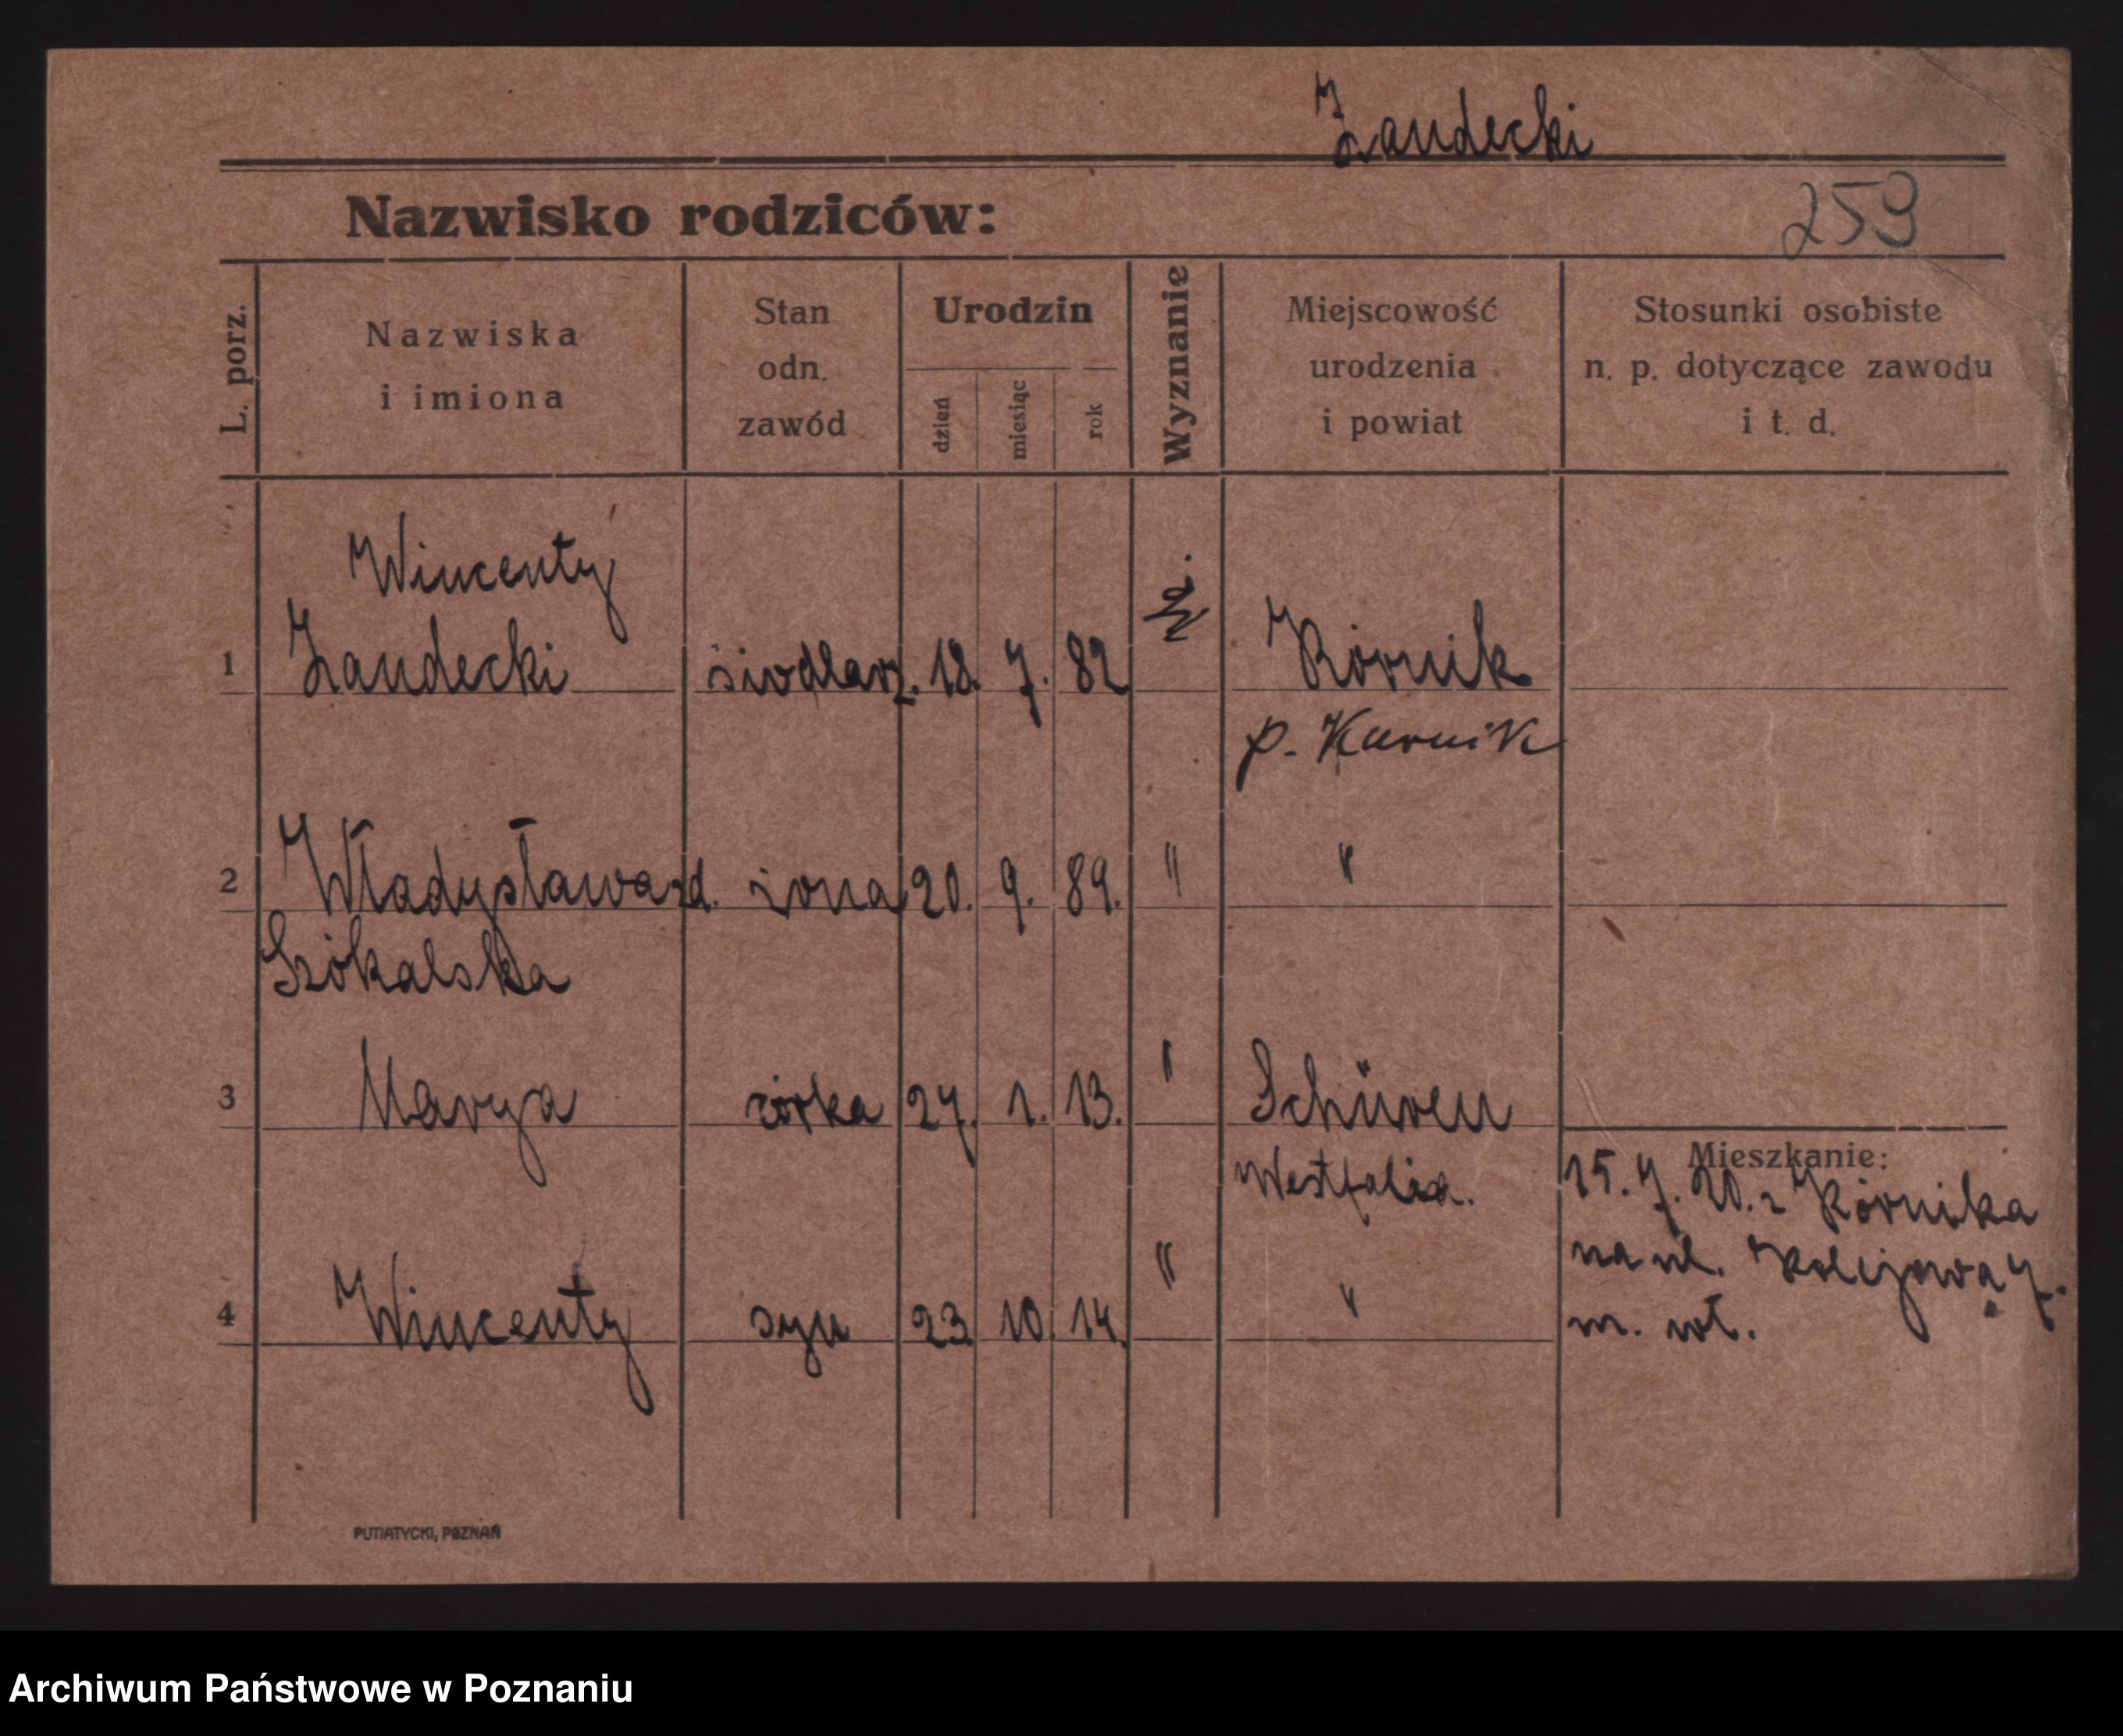 Zandecki
Nazwisko rodziców:
259
L. porz.
Nazwiska
i imiona
Stan
odn.
zawód
Urodzin
dzień
miesiąc
rok
Wyznanie
Miejscowość
urodzenia
i powiat
Stosunki osobiste
n. p. dotyczące zawodu
i t. d.
Wincenty
1 Zandecki siodlarz. 18. 7. 82 Kórnik
p. Kurnik
2 Władysława zd. żona 20. 9. 89. " "
Szókalska
3 Marya córka 27. 1. 13. " Schüren
Westfalia.
Mieszkanie:
15. 7. 20. z Kórnika
na ul. Kolejową 7.
m. wł.
4 Wincenty syn 23. 10. 14. " "
PUTIATYCKI, POZNAŃ
Archiwum Państwowe w Poznaniu